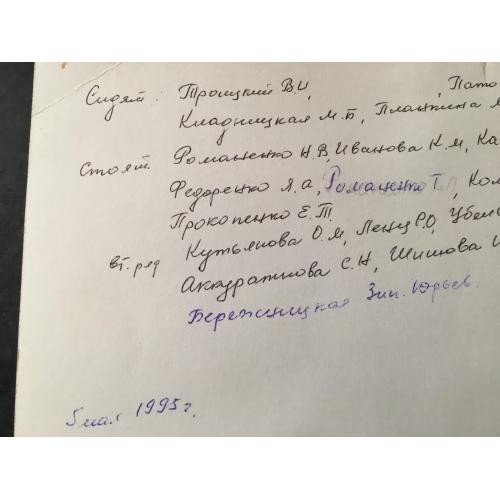 Сидят: Троицкий В.И, Пато
Кладницкая М.Б, Планкина М
Стоят. Романенко Н.В, Иванова К.М, Ка
Федоренко Л.А, Романенко Т. Ком
Прокопенко Е.Т.
вт. ряд Кутьянова О.М, Ленц Р.О, Убель
Аккуратнова С.Н, Шишова И
Бережницкая Зин. Юрьев.
5 мая 1995 г.